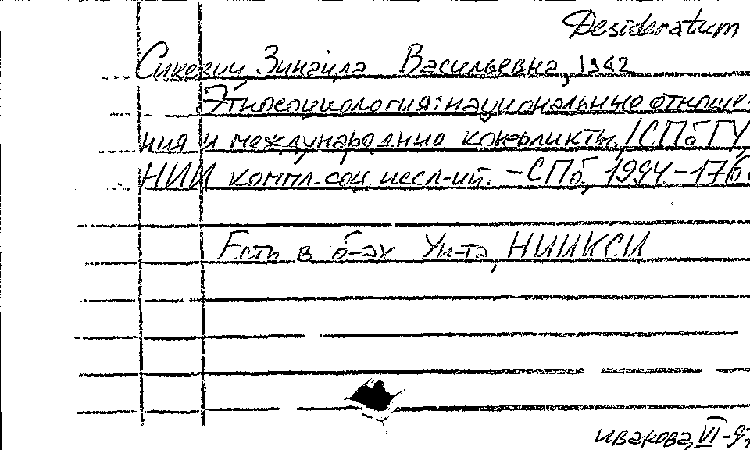 Desideratum
Сикевич Зинаида Васильевна, 1942
Этносоциология: национальные отноше-
ния и межународние конфликты / СПбГУ,
НИИ компл. соц. иссл-ий. – СПб, 1994. – 176
Есть в б-ах Ун-та, НИИКСИ
VI-97